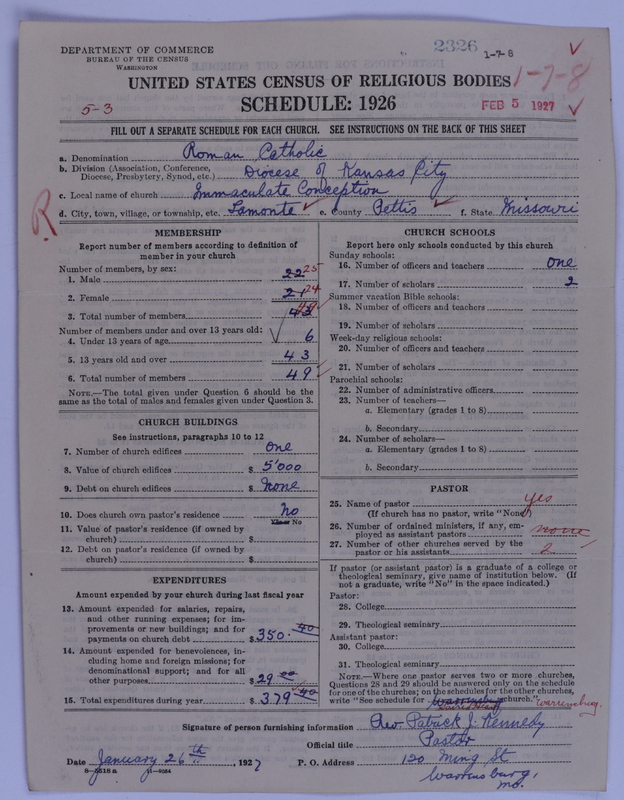 DEPARTMENT OF COMMERCE
BUREAU OF THE CENSUS
WASHINGTON
2326
1-7-8
UNITED STATES CENSUS OF RELIGIOUS BODIES
1-7-8
5-3
SCHEDULE: 1926
FEB 5 1927
FILL OUT A SEPARATE SCHEDULE FOR EACH CHURCH. SEE INSTRUCTIONS ON THE BACK OF THIS SHEET
a. Denomination Roman Catholic
b. Division (Association, Conference, Diocese, Presbytery, Synod, etc.) Diocese of Kansas City
c. Local name of church Immaculate Conception
R
d. City, town, village, or township, etc. Lamonte e. County Pettis f. State Missouri
MEMBERSHIP
Report number of members according to definition of
member in your church
Number of members, by sex:
1. Male 22 25
2. Female 21 24
3. Total number of members 43 49
Number of members under and over 13 years old:
4. Under 13 years of age 6
5. 13 years old and over 43
6. Total number of members 49
NOTE.—The total given under Question 6 should be
same as the total of males and females given under Question 3.
CHURCH BUILDINGS
See instructions, paragraphs 10 to 12
7. Number of church edifices One
8. Value of church edifices $ 5000
9. Debt on church edifices $ None
10. Does church own pastor's residence No
Yes or No
11. Value of pastor's residence (if owned by
church) $
12. Debt on pastor's residence (if owned by
church) $
EXPENDITURES
Amount expended by your church during last fiscal year
13. Amount expended for salaries, repairs,
and other running expenses; for im-
provements or new buildings; and for
payments on church debt $ 350.40
14. Amount expended for benevolences, in-
cluding home and foreign missions; for
denominational support; and for all
other purposes $ 29 00
15. Total expenditures during year $ 379 40
CHURCH SCHOOLS
Report here only schools conducted by this church
Sunday schools:
16. Number of officers and teachers One
17. Number of scholars 2
Summer vacation Bible schools:
18. Number of officers and teachers
19. Number of scholars
Week-day religious schools:
20. Number of officers and teachers
21. Number of scholars
Parochial schools:
22. Number of administrative officers
23. Number of teachers—
a. Elementary (grades 1 to 8)
b. Secondary
24. Number of scholars—
a. Elementary (grades 1 to 8)
b. Secondary
PASTOR
25. Name of pastor yes
(If church has no pastor, write "None")
26. Number of ordained ministers, if any, em-
ployed as assistant pastors none
27. Number of other churches served by the
pastor or his assistants 2
If pastor (or assistant pastor) is a graduate of a college or
theological seminary, give name of institution below. (If
not a graduate, write "No" in the space indicated.)
Pastor:
28. College
29. Theological seminary
Assistant pastor:
30. College
31. Theological seminary
NOTE.—Where one pastor serves two or more churches,
Questions 28 and 29 should be answered only on the schedule
for one of the churches; on the schedules for the other churches,
write "See schedule for Warrensburg Sacred Heart church." Warrensburg.
Signature of person furnishing information Rev. Patrick J. Kennedy
Official title Pastor
Date January 26th, 1927 P. O. Address 120 Ming St
8-5518a 11-9054
Warrensburg,
Mo.